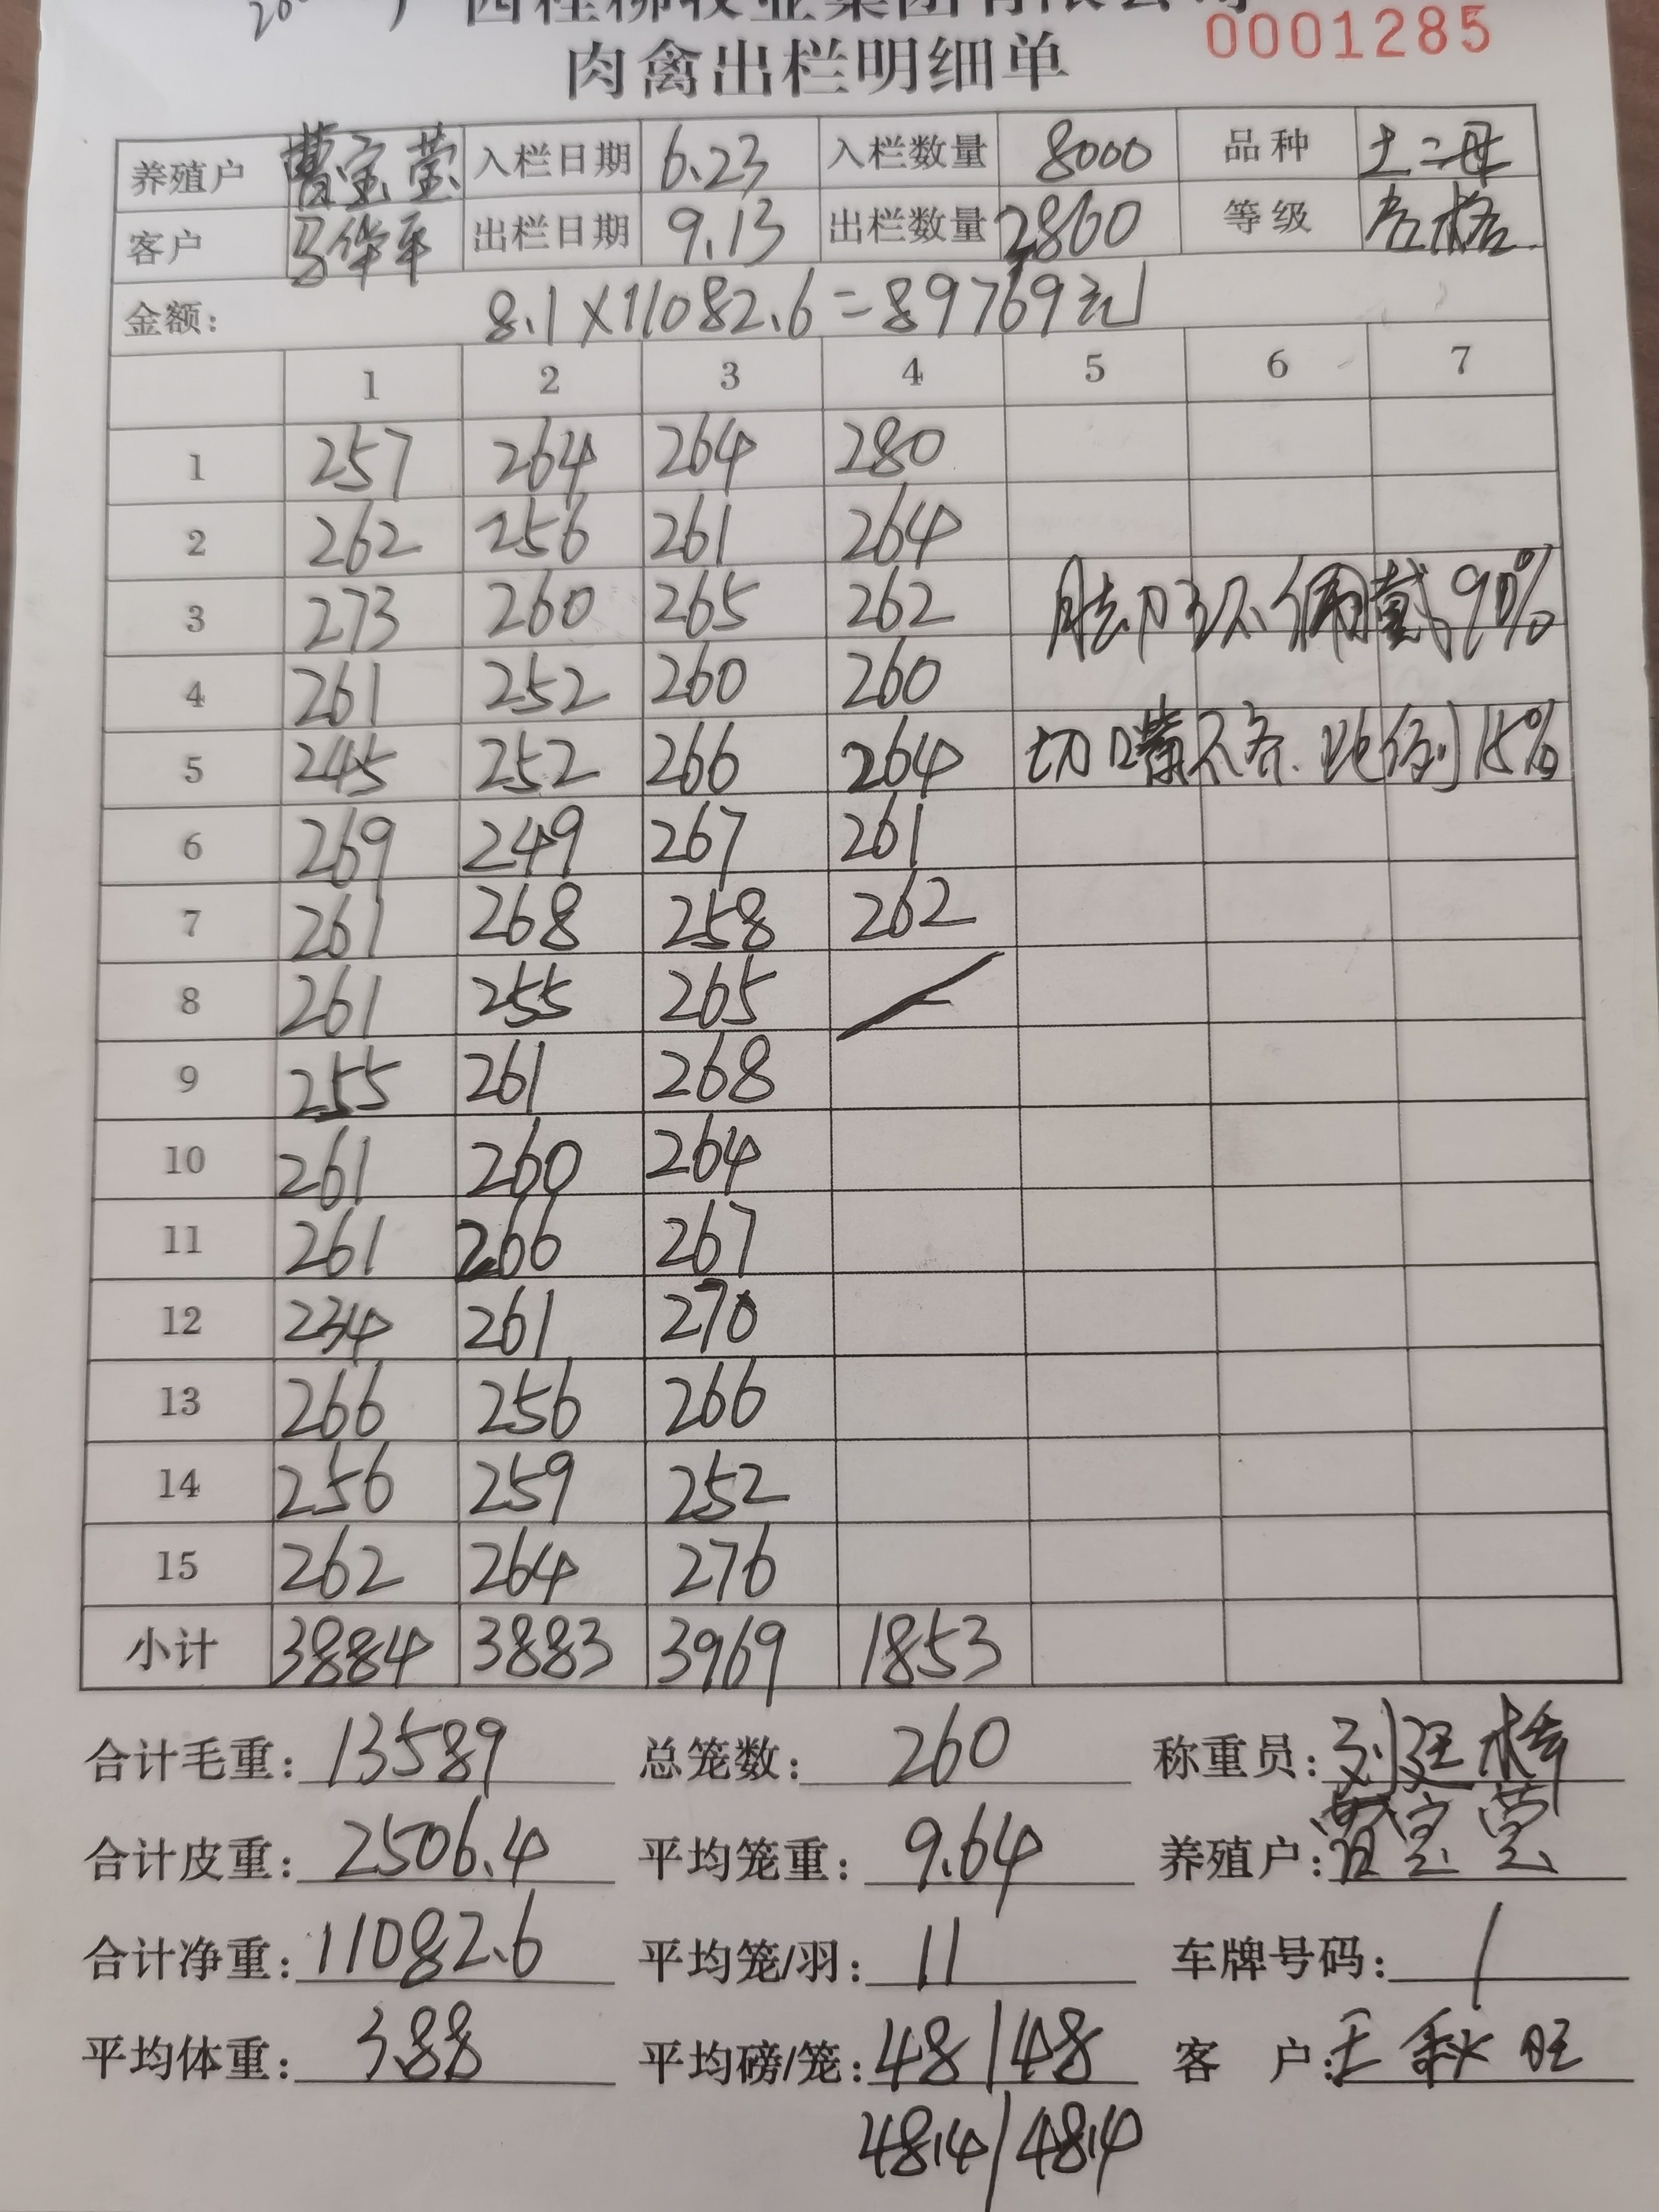 广西桂柳牧业集团有限公司
肉禽出栏明细单 0001285
养殖户 曹宝莹 入栏日期 6.23 入栏数量 8000 品种 土二母
客户 马华平 出栏日期 9.13 出栏数量 2860 等级 合格
金额: 8.1×11082.6=89769元
1 2 3 4 5 6 7
1 257 264 264 280
2 262 256 261 264
3 273 260 265 262 脚环佩戴90%
4 261 252 260 260
5 245 252 266 264 切嘴不齐.比例15%
6 269 249 267 261
7 261 268 258 262
8 261 255 265
9 255 261 268
10 261 260 264
11 261 266 267
12 234 261 270
13 266 256 266
14 256 259 252
15 262 264 276
小计 3884 3883 3969 1853
合计毛重: 13589 总笼数: 260 称重员: 刘廷
合计皮重: 2506.4 平均笼重: 9.64 养殖户: 曹宝莹
合计净重: 11082.6 平均笼/羽: 11 车牌号码: /
平均体重: 3.88 平均磅/笼: 48/48 客 户: 王秋旺
48.4/48.4